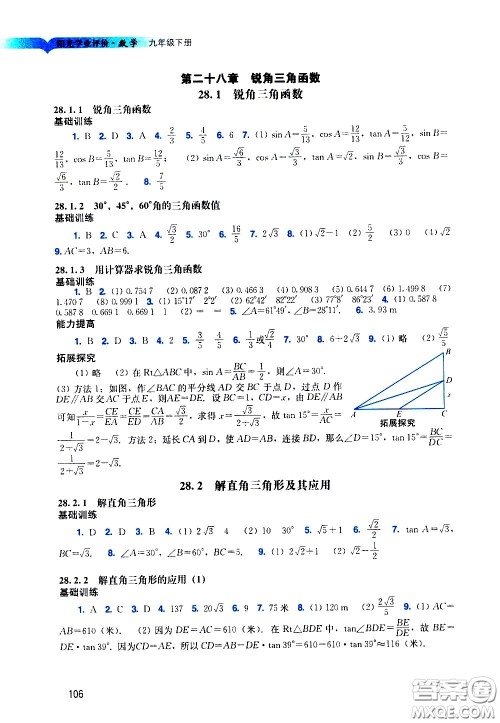 阳光学业评价·数学 九年级下册
第二十八章 锐角三角函数
28.1 锐角三角函数
28.1.1 锐角三角函数
基础训练
1. B 2. D 3. A 4. 2/3 5. 4/5 6. 6 7. (1) sin A=5/13, cos A=12/13, tan A=5/12, sin B=
12/13, cos B=5/13, tan B=12/5; (2) sin A=√6/3, cos A=√3/3, tan A=√2, sin B=√3/3, cos B=
√6/3, tan B=√2/2. 8. 7/5
28.1.2 30°, 45°, 60°角的三角函数值
基础训练
1. B 2. C 3. A 4. √3/2 5. 30° 6. 16/5 7. 2 8. (1) √2-1 (2) 5/2 (3) 0
9. AC=3, AB=6.
28.1.3 用计算器求锐角三角函数
基础训练
1. B 2. (1) 0.754 7 (2) 0.086 3 (3) 0.466 3 (4) 0.908 8 (5) 0.344 7 (6) 1.498 7 (7)
1.470 7 (8) 0.999 1 3. (1) 15°17′ 2°2′ (2) 64°42′ 82°22′ (3) 77°38′ 86°17′ 4. (1) 0.587 8
0.587 8 (2) 0.669 1 0.669 1 1 5. ∠A=61°49′, ∠B=28°11′ 6. 3.93 m
能力提高
1. B 2. B 3. A 4. 2 5. 6. 1/2或 7. 30° 8. 6+2√3 9. (1) 略 (2) 4/5
拓展探究
(1) 略 (2) 在Rt△ABC中, sin A=BC/AB=1/2, ∴∠A=30°.
(3) 方法1: 如图, 作∠BAC的平分线AD交BC于点D, 过点D作
DE∥AB交AC于点E, 则AE=DE. 设BC=1, CE=x, 由DE∥AB
可知x/(1-x)=CE/EA=CE/ED=CA/AB=√3/2, 求得x=√3/(2+√3), 故tan 15°=x/√3=
1/(2+√3)=2-√3. 方法2: 延长CA到D, 使AD=AB, 连接BD, 那么∠D=15°, tan 15°=BC/DC=
1/(2+√3)=2-√3.
B
D
A
E
C
拓展探究
28.2 解直角三角形及其应用
28.2.1 解直角三角形
基础训练
1. D 2. D 3. A 4. (1) 2√3 4 (2) 10√3 30° 5. √5+1 6. 7. ∠A=60°, AC=1,
BC=√3. 8. ∠A=30°, ∠B=60°, BC=√2. 9. (1) 2√31 (2) √2-1/2
28.2.2 解直角三角形的应用(1)
基础训练
1. A 2. C 3. D 4. 137 5. 20√3 6. 2√3/3 7. 2√3 8. (1) 由题意, AC=AB=610(米).
∴AC=AB=610(米). (2) 因为DE=AC=610(米). 在Rt△BDE中, tan∠BDE=BE/DE, ∴BE=
DE·tan 39°. 因为CD=AE, 所以CD=AB-DE·tan 39°=610-610×tan 39°≈116(米).
106